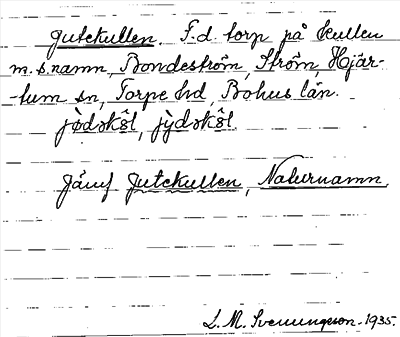 Gutekullen. F.d. torp på kullen
m. s. namn, Bondeström, Ström Hjär-
-tum sn, Torpe hd, Bohus län.
jø̀dəkŝl, jỳdəkŝl
Jämf Gutekullen, Naturnamn.
L. M. Svenungsson - 1935.